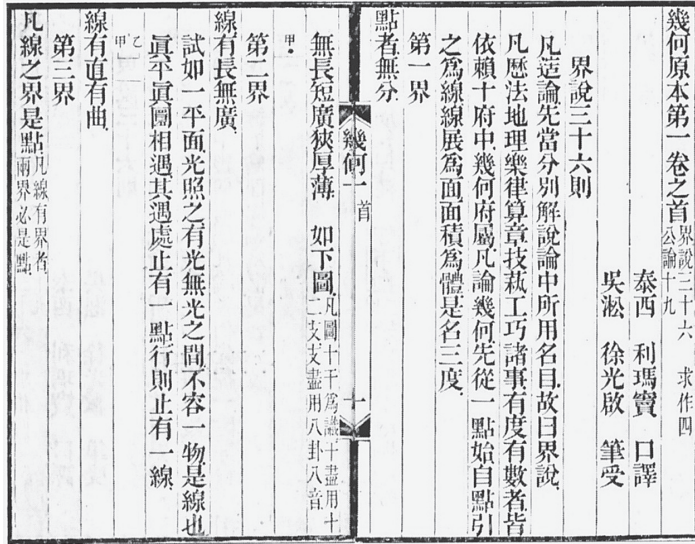 幾何原本第一卷之首界說三十六 求作四
公論十九
泰西 利瑪竇 口譯
吳淞 徐光啟 筆受
界說三十六則
凡造論先當分別解說論中所用名目故曰界說
凡歷法地理樂律算章技藝工巧諸事有度有數者皆
依賴十府中幾何府屬凡論幾何先從一點始自點引
之為線線展為面面積為體是名三度
第一界
點者無分
幾何一 首
十
無長短廣狹厚薄 如下圖凡圖十干為識十盡用十
二支支盡用八卦八音
甲
第二界
線有長無廣
試如一平面光照之有光無光之間不容一物是線也
眞平眞圓相遇其遇處止有一點行則止有一線
乙
甲
線有直有曲
第三界
凡線之界是點凡線有界者
兩界必是點